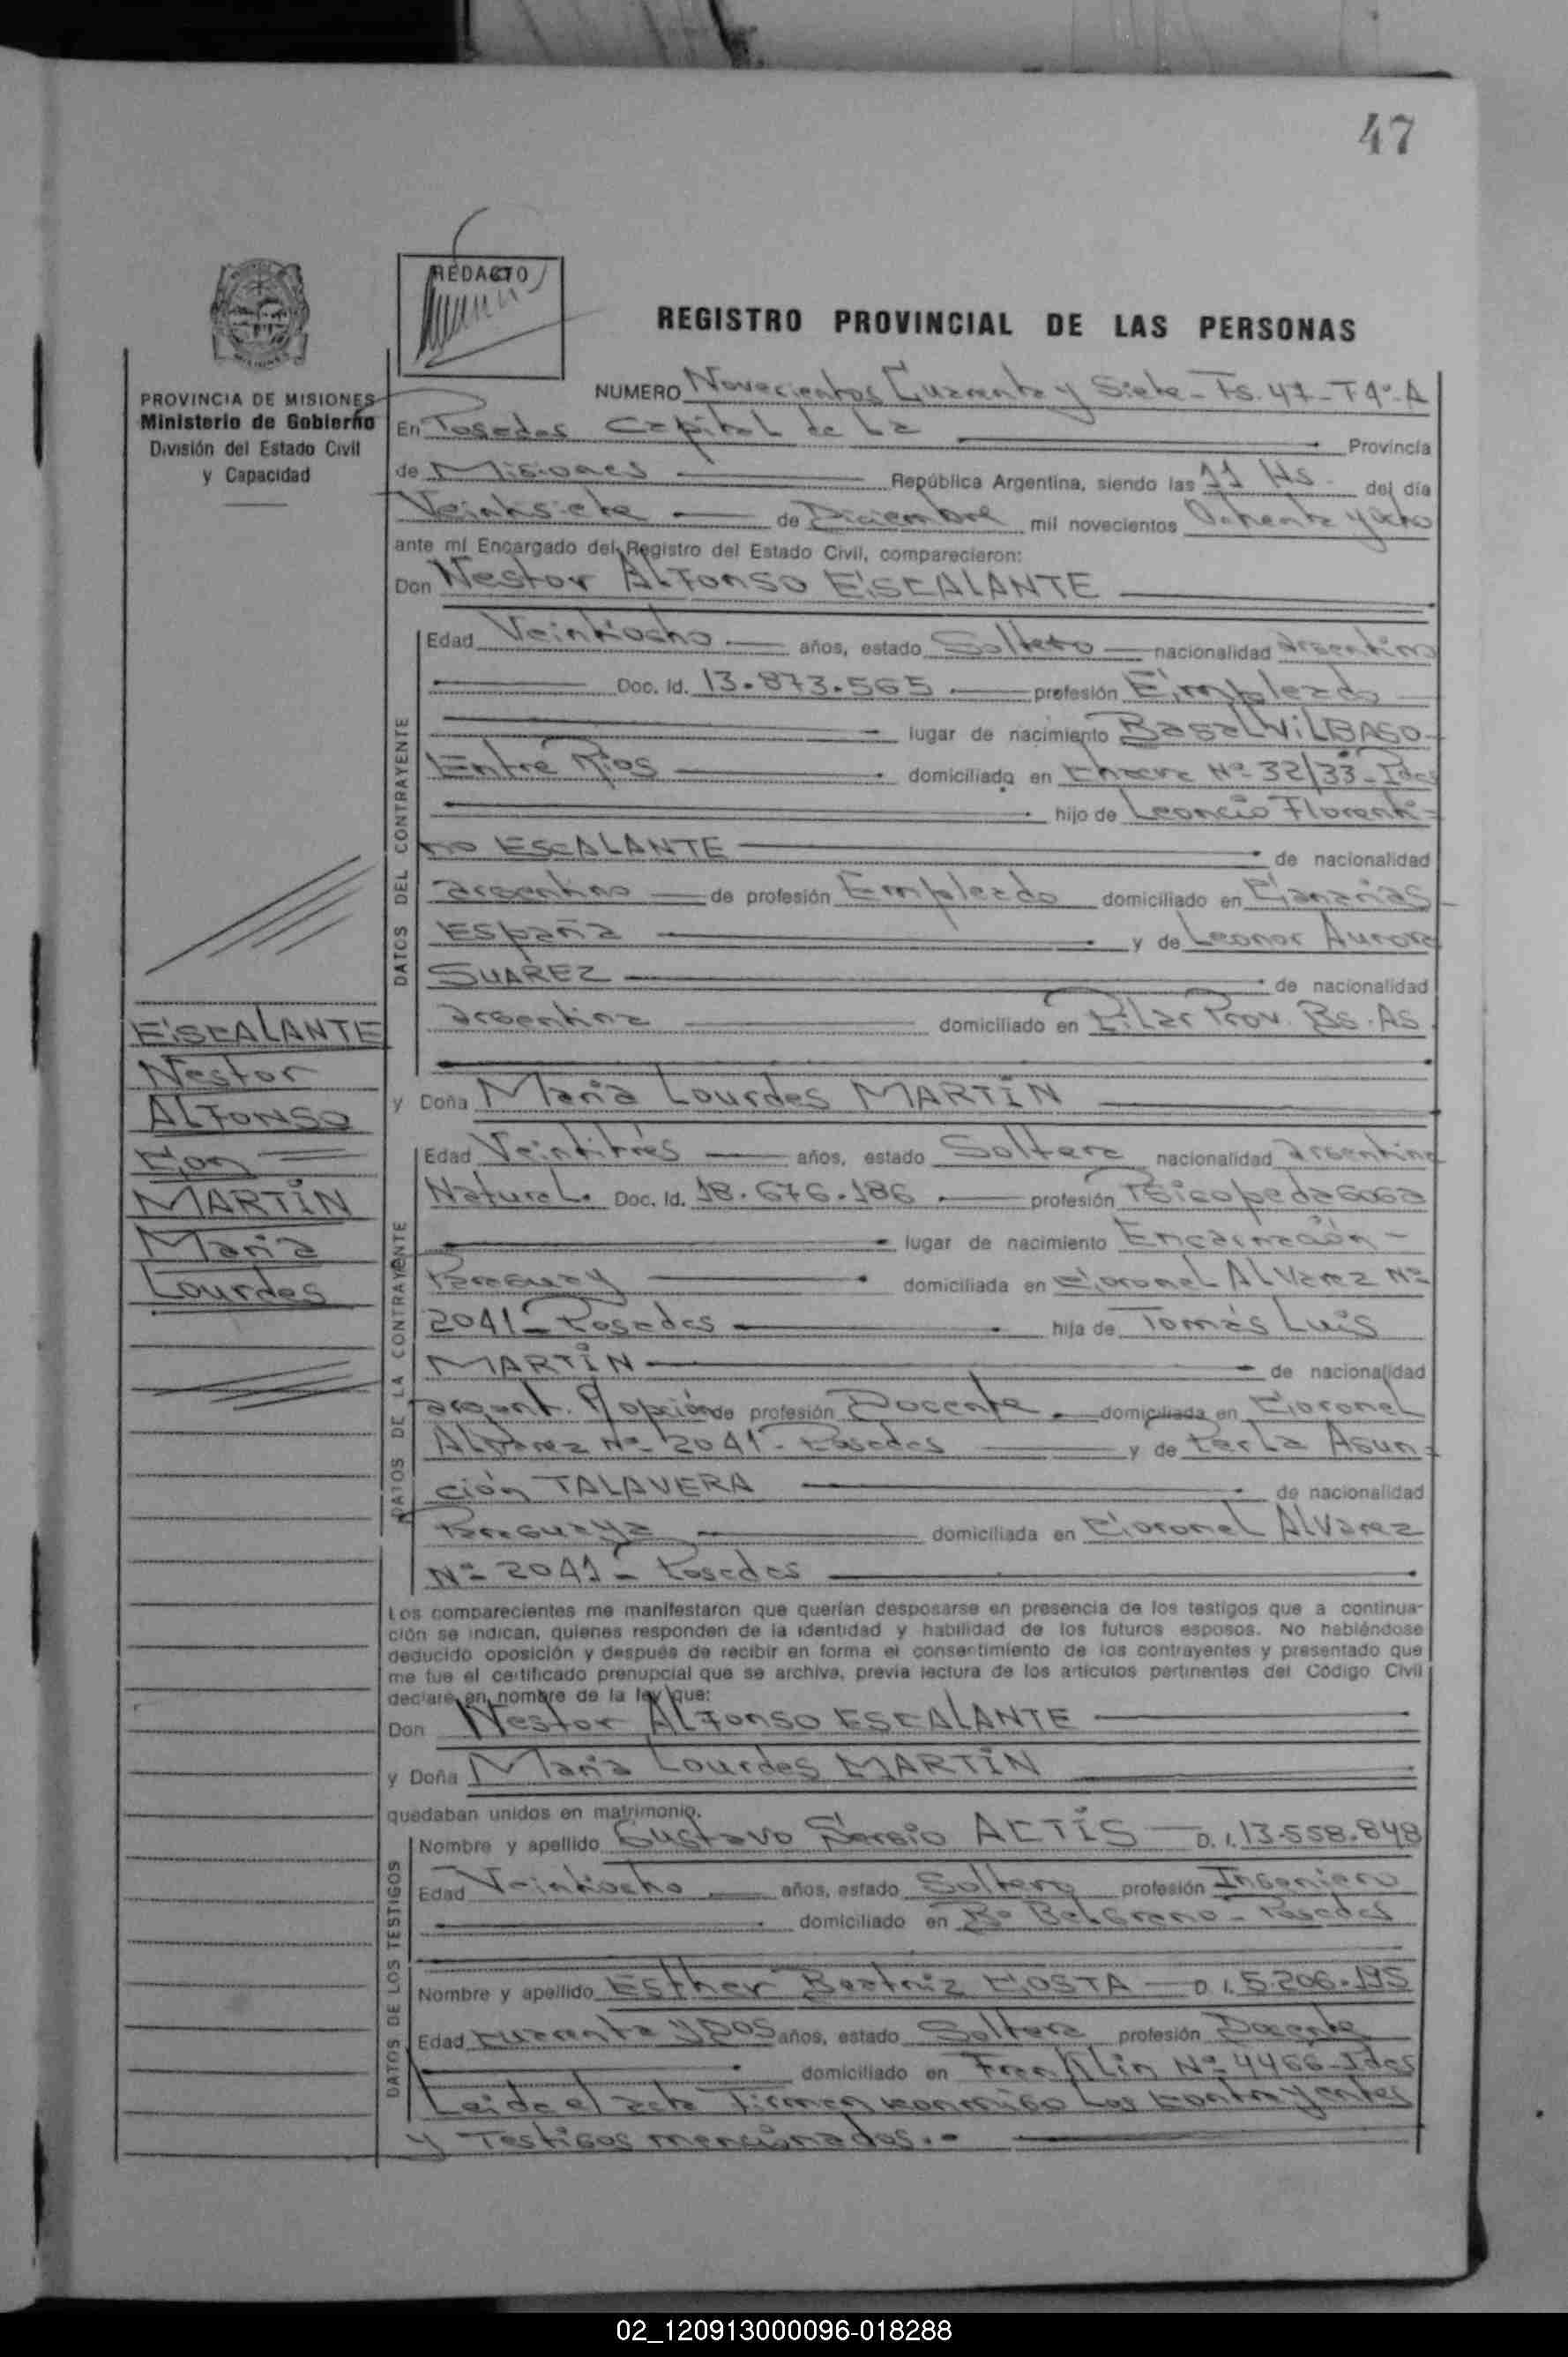 47
REDACTO
REGISTRO PROVINCIAL DE LAS PERSONAS
PROVINCIA DE MISIONES
Ministerio de Gobierno
División del Estado Civil
y Capacidad
NUMERO Novecientos Cuarenta y Siete - Fs. 47 - T 4º- A
En Posadas Capital de La Provincia
de Misiones República Argentina, siendo las 11 Hs. del día
Veintisiete de Diciembre mil novecientos Ochenta y ocho
ante mí Encargado del Registro del Estado Civil, comparecieron:
Don Nestor ALFONSO ESCALANTE
DATOS DEL CONTRAYENTE
Edad Veintiocho años, estado Soltero nacionalidad argentino
Doc. Id. 13.873.565 profesión Empleado
lugar de nacimiento BasaLViLBASO-
Entre Rios domiciliado en Chacra Nº 32/33- Pdas
hijo de Leoncio Florenti-
no ESCALANTE de nacionalidad
argentino de profesión Empleado domiciliado en Canarias
España y de Leonor Aurora
SUAREZ de nacionalidad
argentina domiciliado en Pilar Prov. Bs. As.
ESCALANTE
Nestor
ALFONSO
Con
MARTIN
Maria
Lourdes
y Doña Maria Lourdes MARTIN
DATOS DE LA CONTRAYENTE
Edad Veintitrés años, estado Soltera nacionalidad argentina
Natural. Doc. Id. 18.676.186 profesión Psicopedagoga
lugar de nacimiento Encarnación-
Paraguay domiciliada en Coronel ALVarez Nº
2041- Posadas hija de Tomás Luis
MARTIN de nacionalidad
argent. P/opción de profesión Docente domiciliada en Coronel
Alvarez Nº 2041- Posadas y de Perla Asun-
ción TALAVERA de nacionalidad
Paraguaya domiciliada en Coronel ALVarez
Nº 2041- Posadas
Los comparecientes me manifestaron que querían desposarse en presencia de los testigos que a continua-
ción se indican, quienes responden de la identidad y habilidad de los futuros esposos. No habiéndose
deducido oposición y después de recibir en forma el consentimiento de los contrayentes y presentado que
me fue el certificado prenupcial que se archiva, previa lectura de los artículos pertinentes del Código Civil
declaré en nombre de la ley que:
Don Nestor ALFONSO ESCALANTE
y Doña Maria Lourdes MARTIN
quedaban unidos en matrimonio.
DATOS DE LOS TESTIGOS
Nombre y apellido Gustavo Sergio ACTIS D. I. 13.558.848
Edad Veintiocho años, estado Soltero profesión Ingeniero
domiciliado en Bº BeLGrano - Posadas
Nombre y apellido Esther Beatriz COSTA D. I. 5.206.195
Edad Cuarenta y DOS años, estado Soltera profesión Docente
domiciliado en FranKLin Nº 4466- Pdas
Leida el acta Firman conmigo Los Contrayentes
y Testigos mencionados.-
02_120913000096-018288